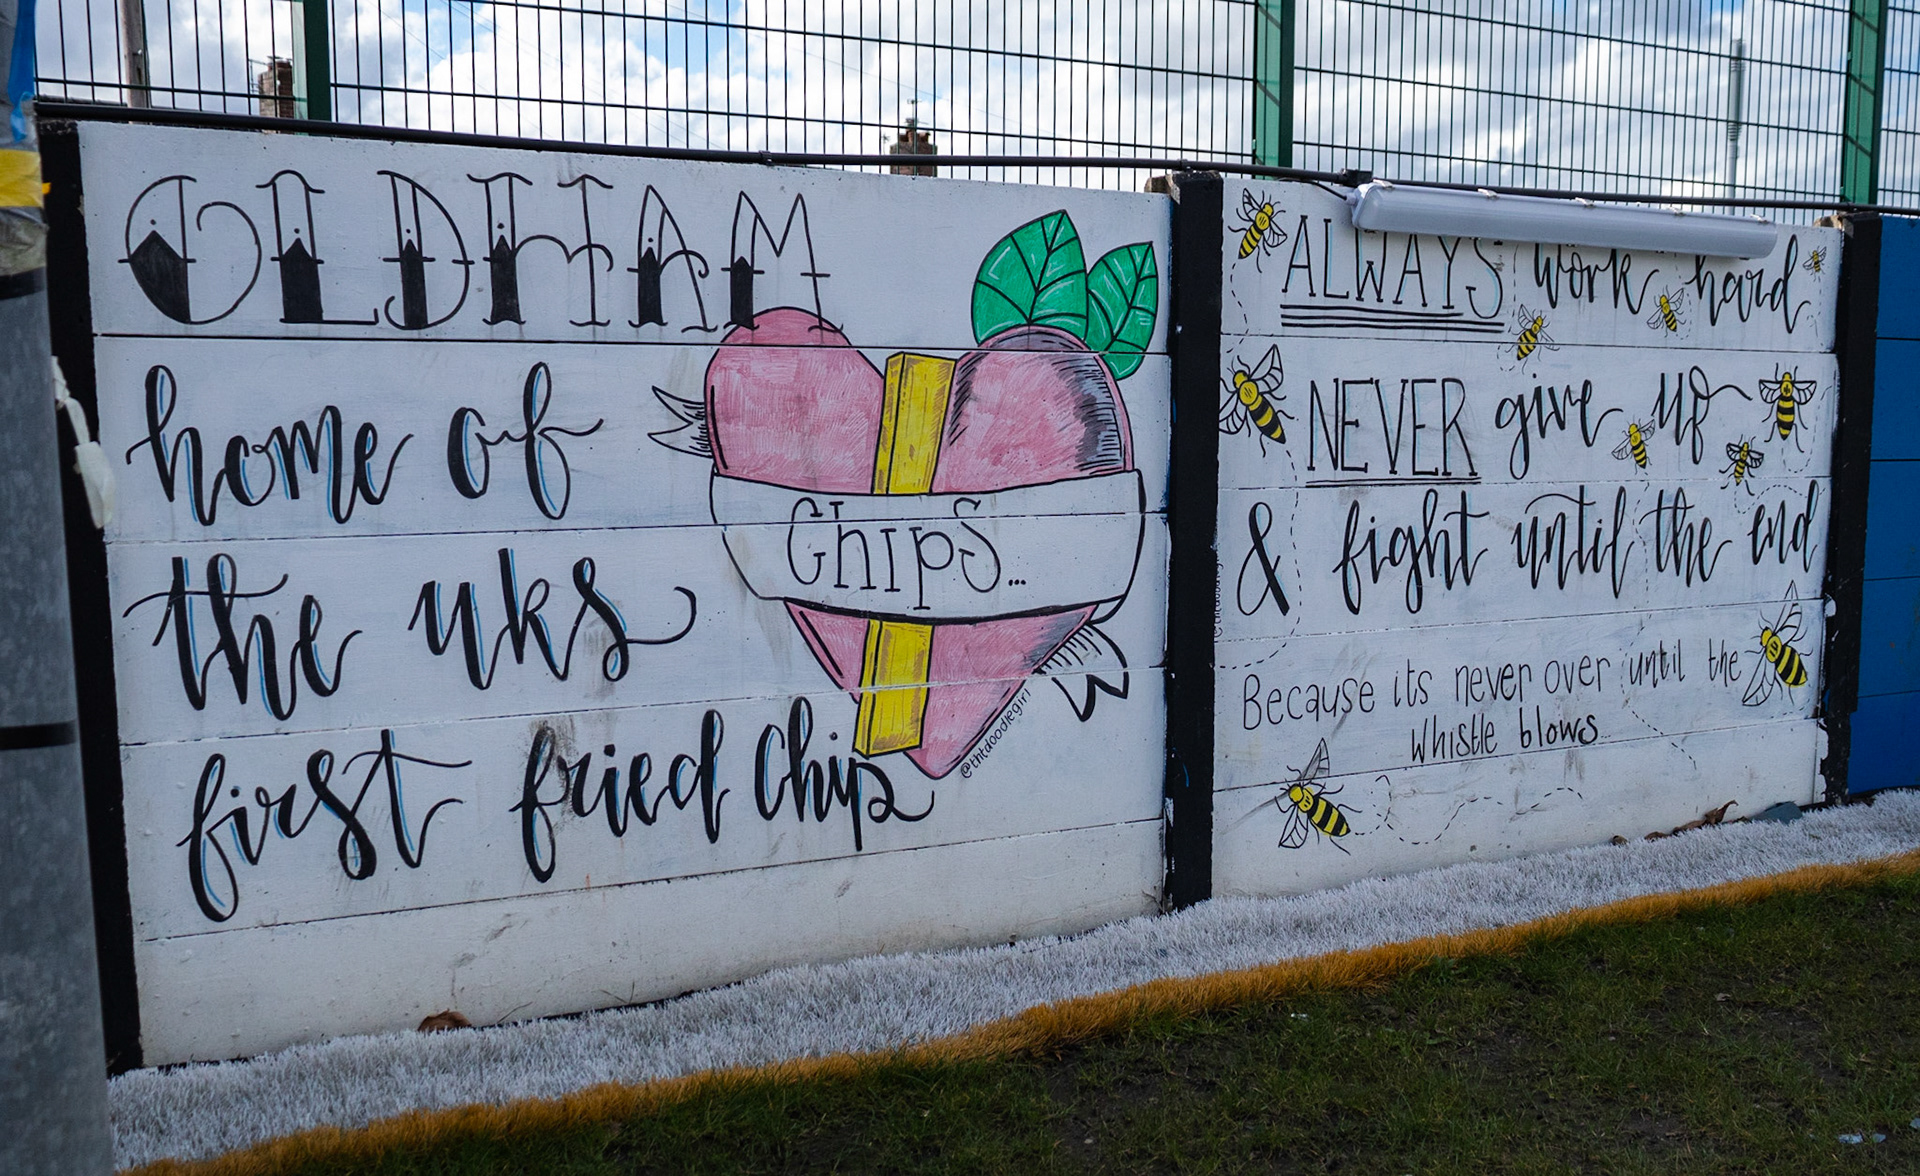 OLDHAM
home of
the uks
first fried chip
Chips...
@thtdoodlegirl
ALWAYS work hard
NEVER give up
& fight until the end
Because its never over until the
whistle blows